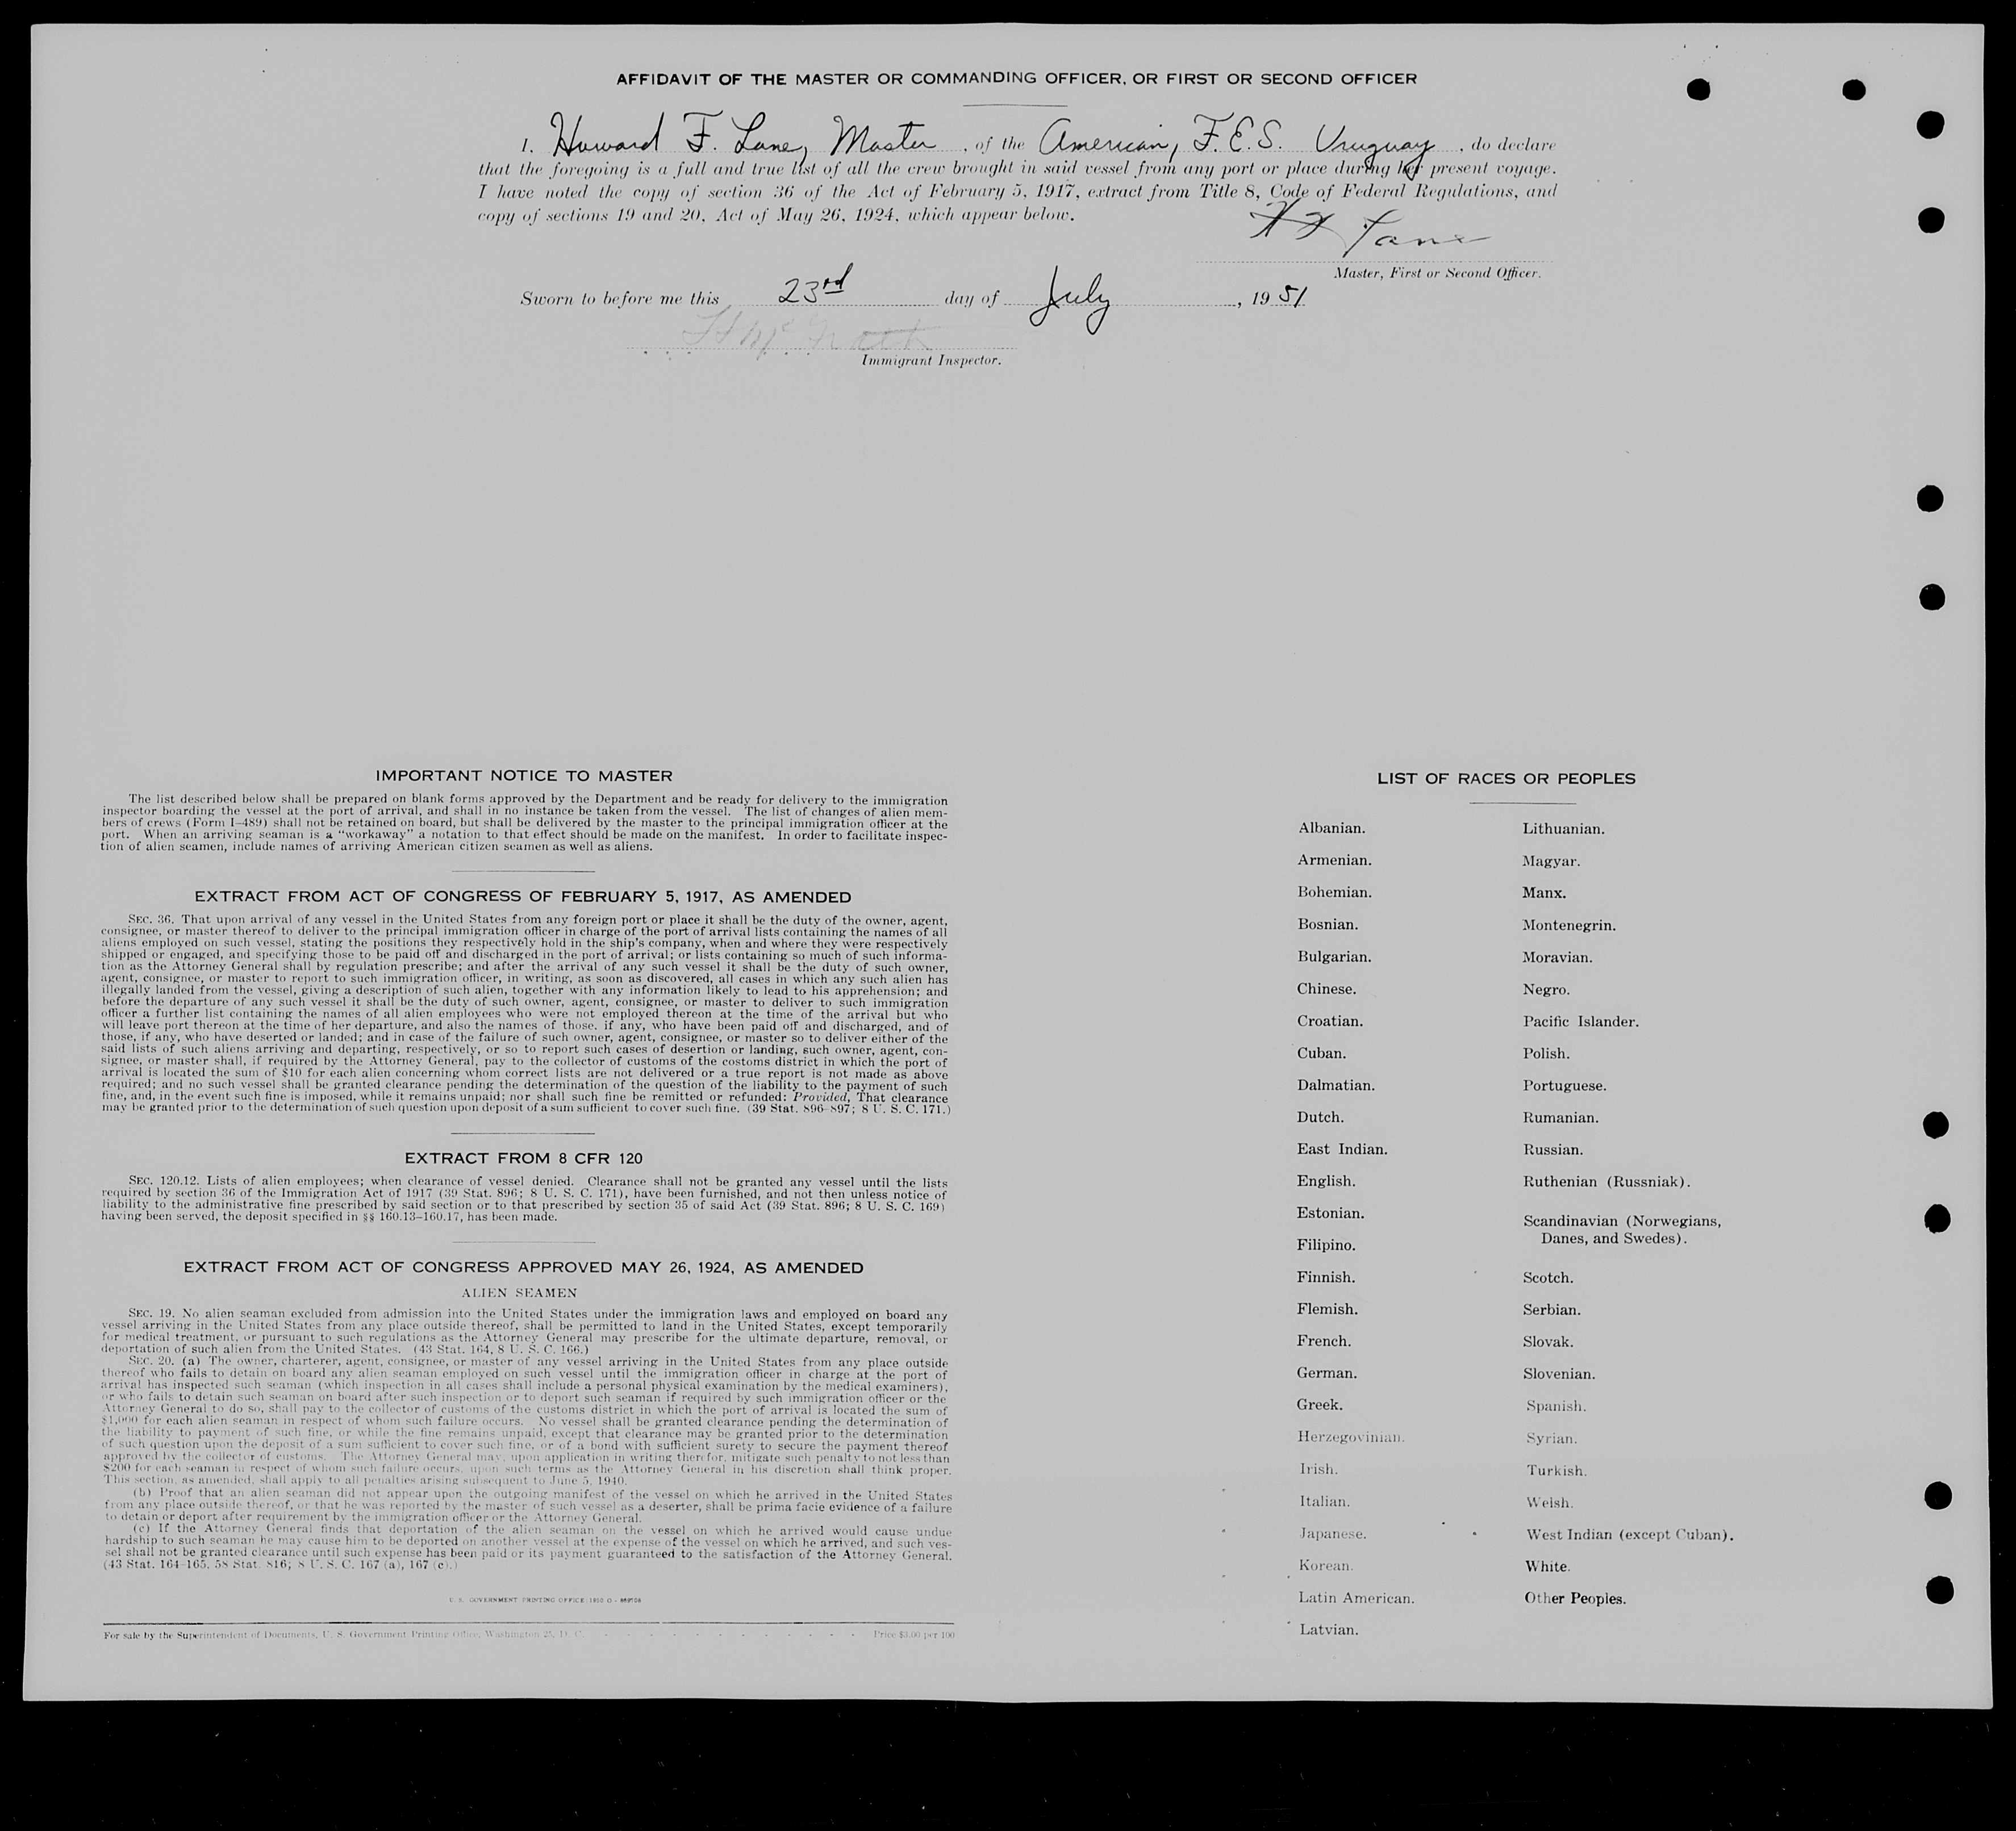 AFFIDAVIT OF THE MASTER OR COMMANDING OFFICER, OR FIRST OR SECOND OFFICER
I, Howard F. Lane, Master, of the American, F.E.S. Uruguay, do declare
that the foregoing is a full and true list of all the crew brought in said vessel from any port or place during her present voyage.
I have noted the copy of section 36 of the Act of February 5, 1917, extract from Title 8, Code of Federal Regulations, and
copy of sections 19 and 20, Act of May 26, 1924, which appear below.
H F Lane
Master, First or Second Officer.
Sworn to before me this 23rd day of July, 1951
Immigrant Inspector.
IMPORTANT NOTICE TO MASTER
The list described below shall be prepared on blank forms approved by the Department and be ready for delivery to the immigration
inspector boarding the vessel at the port of arrival, and shall in no instance be taken from the vessel. The list of changes of alien mem-
bers of crews (Form I-489) shall not be retained on board, but shall be delivered by the master to the principal immigration officer at the
port. When an arriving seaman is a "workaway" a notation to that effect should be made on the manifest. In order to facilitate inspec-
tion of alien seamen, include names of arriving American citizen seamen as well as aliens.
EXTRACT FROM ACT OF CONGRESS OF FEBRUARY 5, 1917, AS AMENDED
SEC. 36. That upon arrival of any vessel in the United States from any foreign port or place it shall be the duty of the owner, agent,
consignee, or master thereof to deliver to the principal immigration officer in charge of the port of arrival lists containing the names of all
aliens employed on such vessel, stating the positions they respectively hold in the ship's company, when and where they were respectively
shipped or engaged, and specifying those to be paid off and discharged in the port of arrival; or lists containing so much of such informa-
tion as the Attorney General shall by regulation prescribe; and after the arrival of any such vessel it shall be the duty of such owner,
agent, consignee, or master to report to such immigration officer, in writing, as soon as discovered, all cases in which any such alien has
illegally landed from the vessel, giving a description of such alien, together with any information likely to lead to his apprehension; and
before the departure of any such vessel it shall be the duty of such owner, agent, consignee, or master to deliver to such immigration
officer a further list containing the names of all alien employees who were not employed thereon at the time of the arrival but who
will leave port thereon at the time of her departure, and also the names of those, if any, who have been paid off and discharged, and of
those, if any, who have deserted or landed; and in case of the failure of such owner, agent, consignee, or master so to deliver either of the
said lists of such aliens arriving and departing, respectively, or so to report such cases of desertion or landing, such owner, agent, con-
signee, or master shall, if required by the Attorney General, pay to the collector of customs of the costoms district in which the port of
arrival is located the sum of $10 for each alien concerning whom correct lists are not delivered or a true report is not made as above
required; and no such vessel shall be granted clearance pending the determination of the question of the liability to the payment of such
fine, and, in the event such fine is imposed, while it remains unpaid; nor shall such fine be remitted or refunded: Provided, That clearance
may be granted prior to the determination of such question upon deposit of a sum sufficient to cover such fine. (39 Stat. 896-897; 8 U. S. C. 171.)
EXTRACT FROM 8 CFR 120
SEC. 120.12. Lists of alien employees; when clearance of vessel denied. Clearance shall not be granted any vessel until the lists
required by section 36 of the Immigration Act of 1917 (39 Stat. 896; 8 U. S. C. 171), have been furnished, and not then unless notice of
liability to the administrative fine prescribed by said section or to that prescribed by section 35 of said Act (39 Stat. 896; 8 U. S. C. 169)
having been served, the deposit specified in §§ 160.13-160.17, has been made.
EXTRACT FROM ACT OF CONGRESS APPROVED MAY 26, 1924, AS AMENDED
ALIEN SEAMEN
SEC. 19. No alien seaman excluded from admission into the United States under the immigration laws and employed on board any
vessel arriving in the United States from any place outside thereof, shall be permitted to land in the United States, except temporarily
for medical treatment, or pursuant to such regulations as the Attorney General may prescribe for the ultimate departure, removal, or
deportation of such alien from the United States. (43 Stat. 164, 8 U. S. C. 166.)
SEC. 20. (a) The owner, charterer, agent, consignee, or master of any vessel arriving in the United States from any place outside
thereof who fails to detain on board any alien seaman employed on such vessel until the immigration officer in charge at the port of
arrival has inspected such seaman (which inspection in all cases shall include a personal physical examination by the medical examiners),
or who fails to detain such seaman on board after such inspection or to deport such seaman if required by such immigration officer or the
Attorney General to do so, shall pay to the collector of customs of the customs district in which the port of arrival is located the sum of
$1,000 for each alien seaman in respect of whom such failure occurs. No vessel shall be granted clearance pending the determination of
the liability to payment of such fine, or while the fine remains unpaid, except that clearance may be granted prior to the determination
of such question upon the deposit of a sum sufficient to cover such fine, or of a bond with sufficient surety to secure the payment thereof
approved by the collector of customs. The Attorney General may, upon application in writing therefor, mitigate such penalty to not less than
$200 for each seaman in respect of whom such failure occurs, upon such terms as the Attorney General in his discretion shall think proper.
This section, as amended, shall apply to all penalties arising subsequent to June 5, 1940.
(b) Proof that an alien seaman did not appear upon the outgoing manifest of the vessel on which he arrived in the United States
from any place outside thereof, or that he was reported by the master of such vessel as a deserter, shall be prima facie evidence of a failure
to detain or deport after requirement by the immigration officer or the Attorney General.
(c) If the Attorney General finds that deportation of the alien seaman on the vessel on which he arrived would cause undue
hardship to such seaman he may cause him to be deported on another vessel at the expense of the vessel on which he arrived, and such ves-
sel shall not be granted clearance until such expense has been paid or its payment guaranteed to the satisfaction of the Attorney General.
(43 Stat. 164-165, 58 Stat. 816; 8 U. S. C. 167 (a), 167 (c).)
U. S. GOVERNMENT PRINTING OFFICE: 1950 O -
For sale by the Superintendent of Documents, U. S. Government Printing Office, Washington 25, D. C. - - - - - - - - - - - - Price $3.00 per 100
LIST OF RACES OR PEOPLES
Albanian.
Armenian.
Bohemian.
Bosnian.
Bulgarian.
Chinese.
Croatian.
Cuban.
Dalmatian.
Dutch.
East Indian.
English.
Estonian.
Filipino.
Finnish.
Flemish.
French.
German.
Greek.
Herzegovinian.
Irish.
Italian.
Japanese.
Korean.
Latin American.
Latvian.
Lithuanian.
Magyar.
Manx.
Montenegrin.
Moravian.
Negro.
Pacific Islander.
Polish.
Portuguese.
Rumanian.
Russian.
Ruthenian (Russniak).
Scandinavian (Norwegians,
Danes, and Swedes).
Scotch.
Serbian.
Slovak.
Slovenian.
Spanish.
Syrian.
Turkish.
Welsh.
West Indian (except Cuban).
White.
Other Peoples.